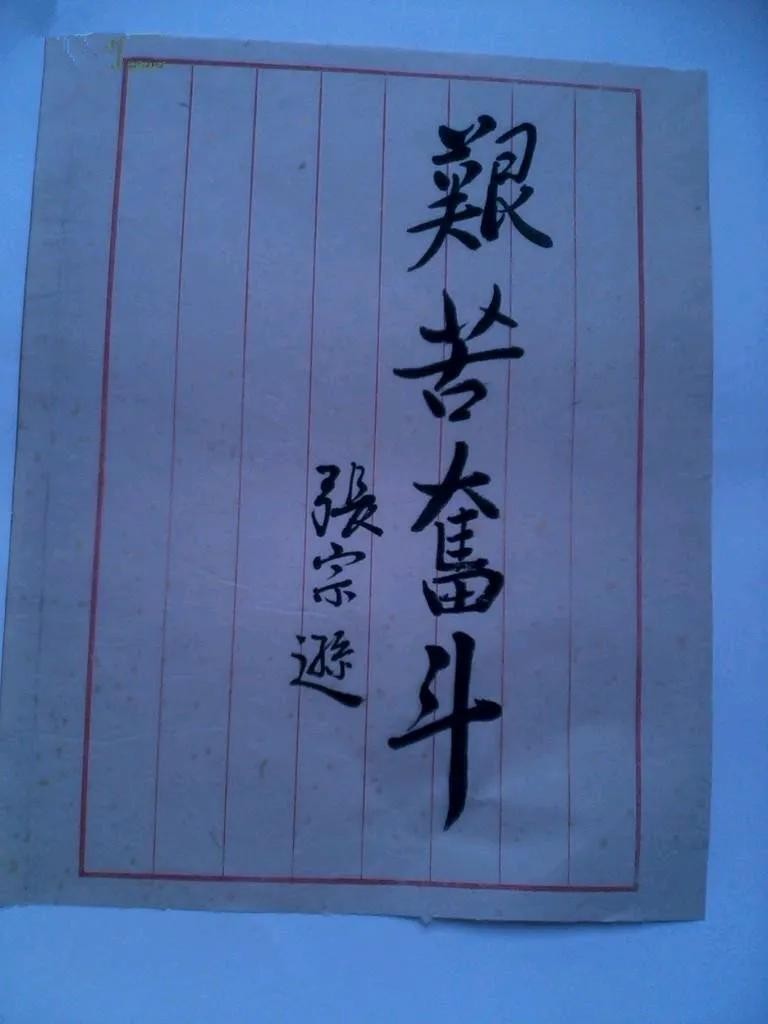 艱苦奮斗
張宗遜